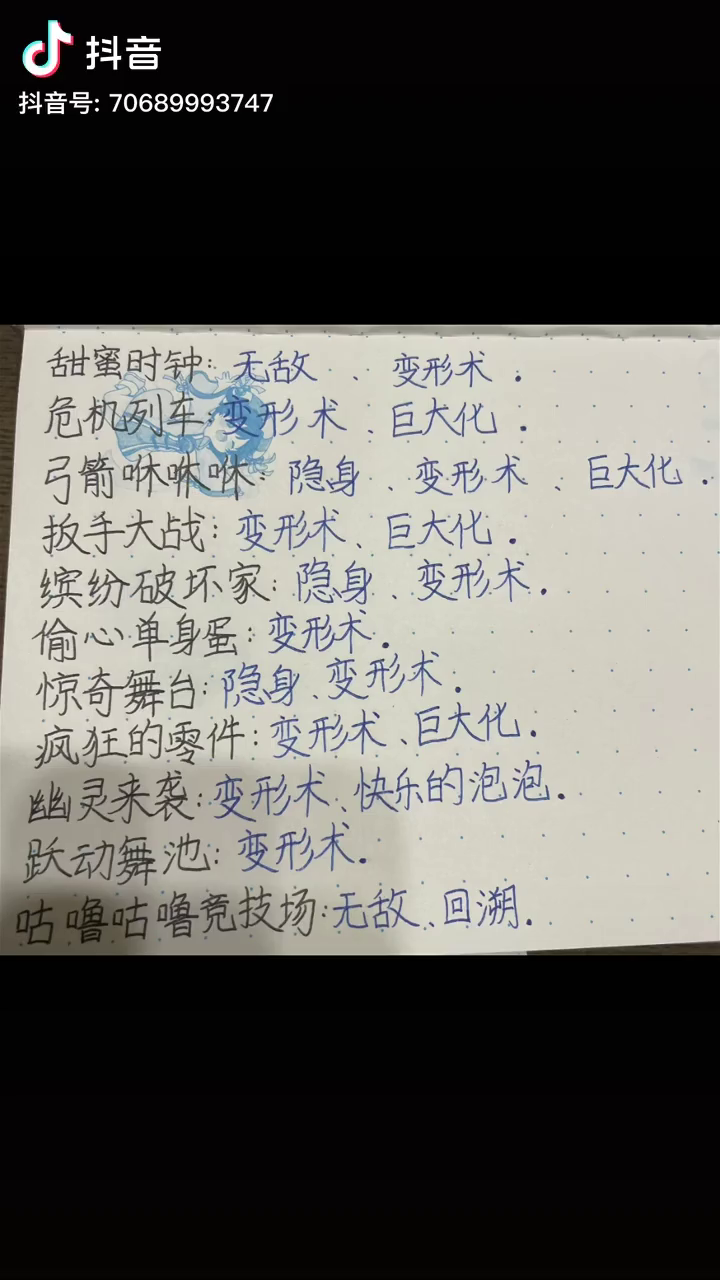 抖音
抖音号: 70689993747
甜蜜时钟: 无敌 、 变形术 .
危机列车: 变形术 、巨大化 .
弓箭咻咻咻: 隐身 、变形术 、巨大化 .
扳手大战: 变形术、巨大化 .
缤纷破坏家: 隐身、变形术.
偷心单身蛋: 变形术.
惊奇舞台: 隐身、变形术.
疯狂的零件: 变形术、巨大化.
幽灵来袭: 变形术、快乐的泡泡.
跃动舞池: 变形术.
咕噜咕噜竞技场: 无敌、回溯.